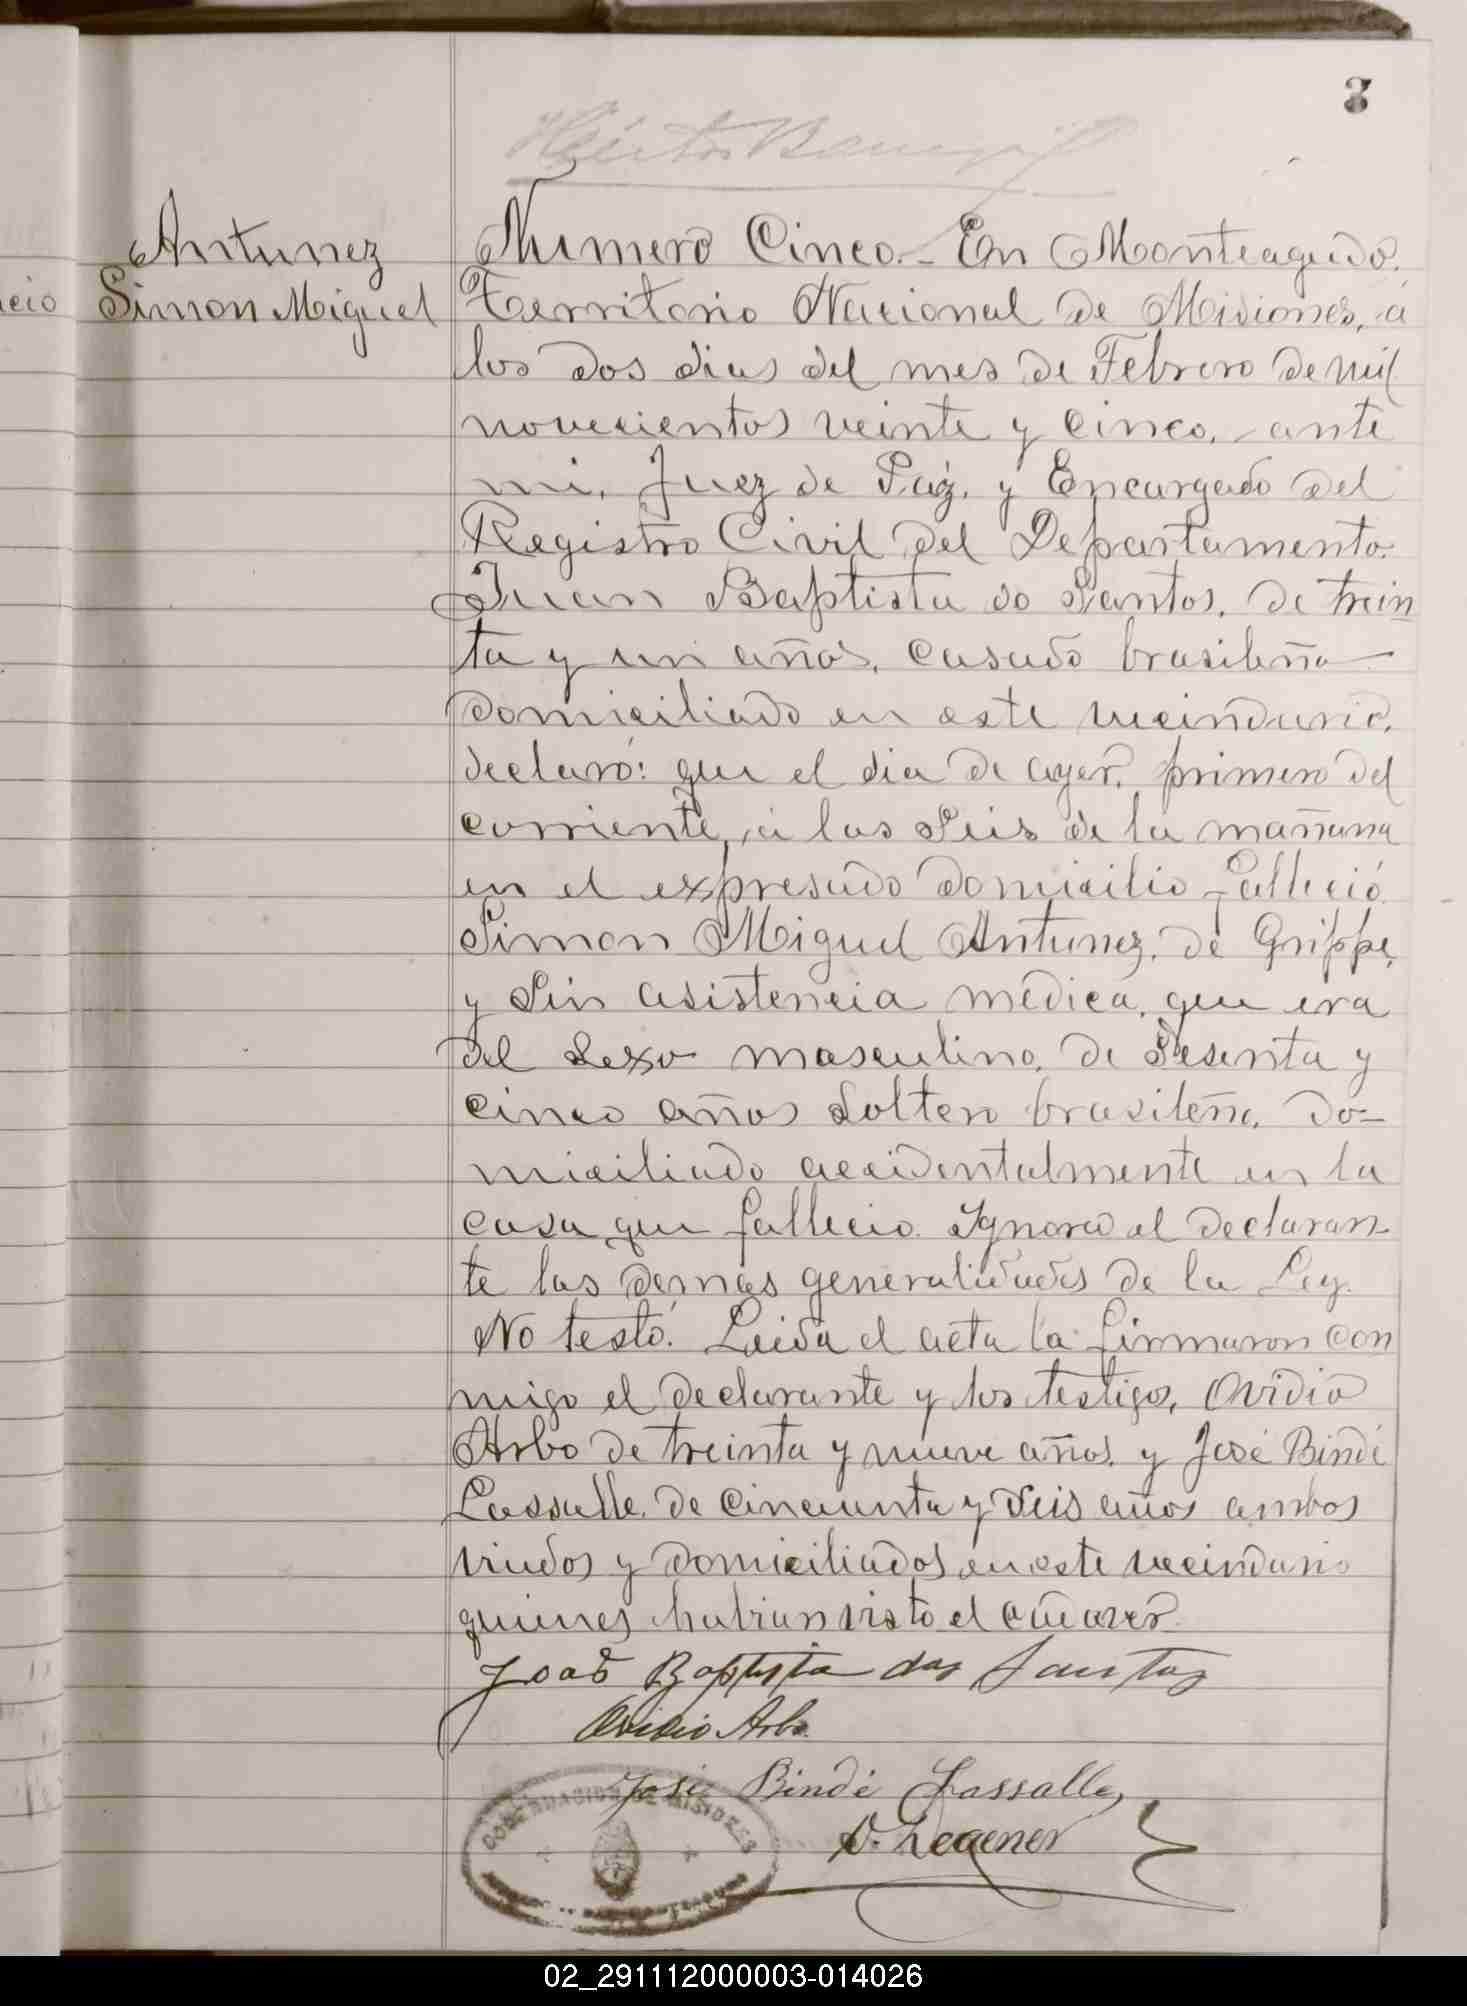 3
Antunez
Simon Miguel
Numero Cinco.- En Monteagudo.
Territorio Nacional de Misiones, á
los dos dias del mes de Febrero de mil
novecientos veinte y cinco, ante
mi, Juez de Páz, y Encargado del
Registro Civil del Departamento.
Juan Baptista do Santos, de trein
ta y un años, casado brasileño
domiciliado en este vecindario,
declaró: que el dia de ayer, primero del
corriente, á las Seis de la mañana
en el expresado domicilio falleció
Simon Miguel Antunez, de Grippe,
y Sin asistencia médica, que era
del Sexo masculino, de Sesenta y
cinco años Soltero brasileño, do-
miciliado accidentalmente en la
casa que fallecio. Ignora el declaran-
te las demás generalidades de la Ley.
No testó. Leida el acta la firmaron con
migo el declarante y los testigos, Ovidio
Arbo de treinta y nueve años, y José Bindé
Lassalle, de cincuenta y Seis años ambos
viudos y domiciliados en este vecindario
quienes habian visto el cadaver.
Joaõ Baptista dos Santos
Ovidio Arbo.
José Bindé Lassalle,
GOBERNACION DE MISIONES
02_291112000003-014026